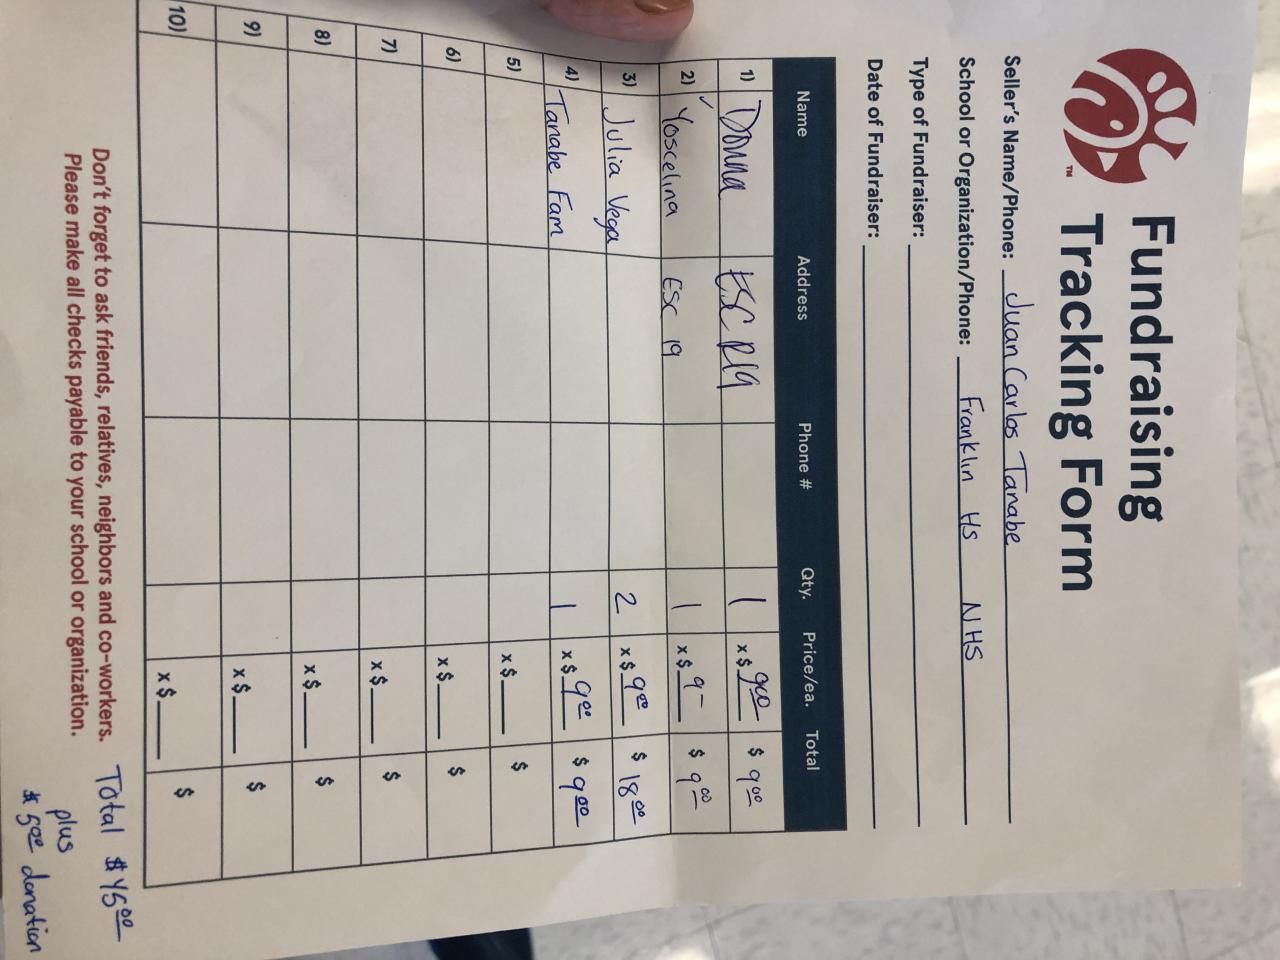 Fundraising
Tracking Form
TM
Seller's Name/Phone: Juan Carlos Tanabe
School or Organization/Phone: Franklin HS NHS
Type of Fundraiser:
Date of Fundraiser:
Name Address Phone # Qty. Price/ea. Total
1) Donna ESC R19 1 x $ 9.00 $ 9.00
2) ✓ Yoscelina ESC 19 1 x $ 9- $ 9.00
3) Julia Vega 2 x $ 9.00 $ 18.00
4) Tanabe Fam 1 x $ 9.00 $ 9.00
5) x $ $
6) x $ $
7) x $ $
8) x $ $
9) x $ $
10) x $ $
Don't forget to ask friends, relatives, neighbors and co-workers.
Please make all checks payable to your school or organization.
Total $ 45.00
plus
$ 5.00 donation